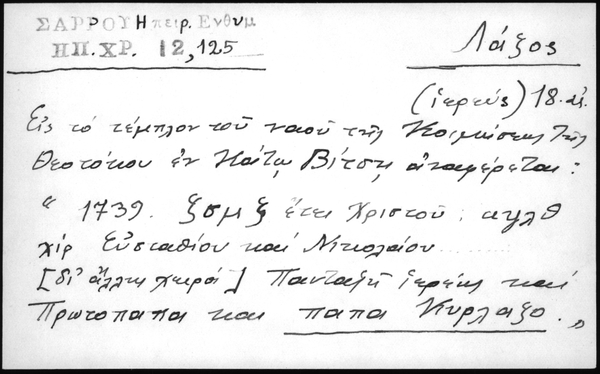 ΣΑΡΡΟΥ Ηπειρ. Ενθυμ
ΗΠ.ΧΡ. 12,125
Λάζος
(ἱερεύς) 18. αἰ.
Εἰς τό τέμπλον τοῦ ναοῦ τῆς Κοιμήσεως τῆς
Θεοτόκου ἐν Κάτω Βίτσῃ ἀναφέρεται:
" 1739. ζσμζ ἔτει Χριστοῦ: αψλθ
χίρ Εὐσταθίου καί Νικολαίου.......
[δι' ἄλλης χειρός] Πανταζῆ ἱερέως καί
Πρωτοπαπα και παπα Κυρλαζο.„